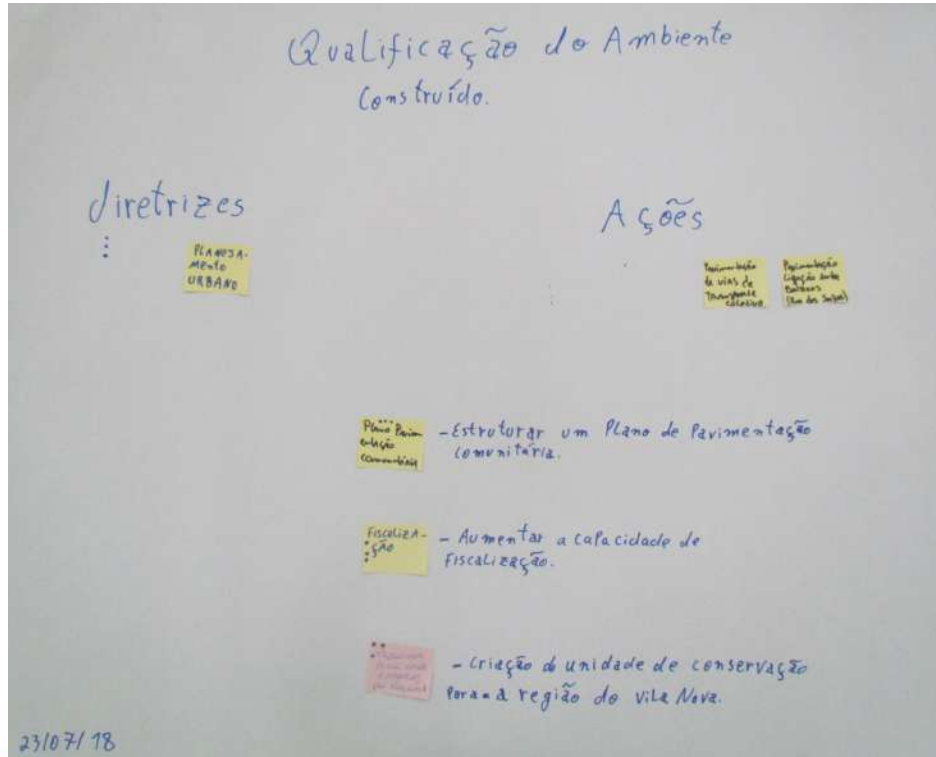 Qualificação do Ambiente
Construído.
diretrizes
Ações
PLANEJA-
MENTO
URBANO
Pavimentação
de vias de
Transporte
coletivo
Pavimentação
Ligação entre
Bairros
Plano Pavim
entação
comunitária
- Estruturar um Plano de Pavimentação
comunitária.
Fiscaliza-
ção
- Aumentar a capacidade de
Fiscalização.
- Criação de unidade de conservação
para a região do Vila Nova.
23/07/18